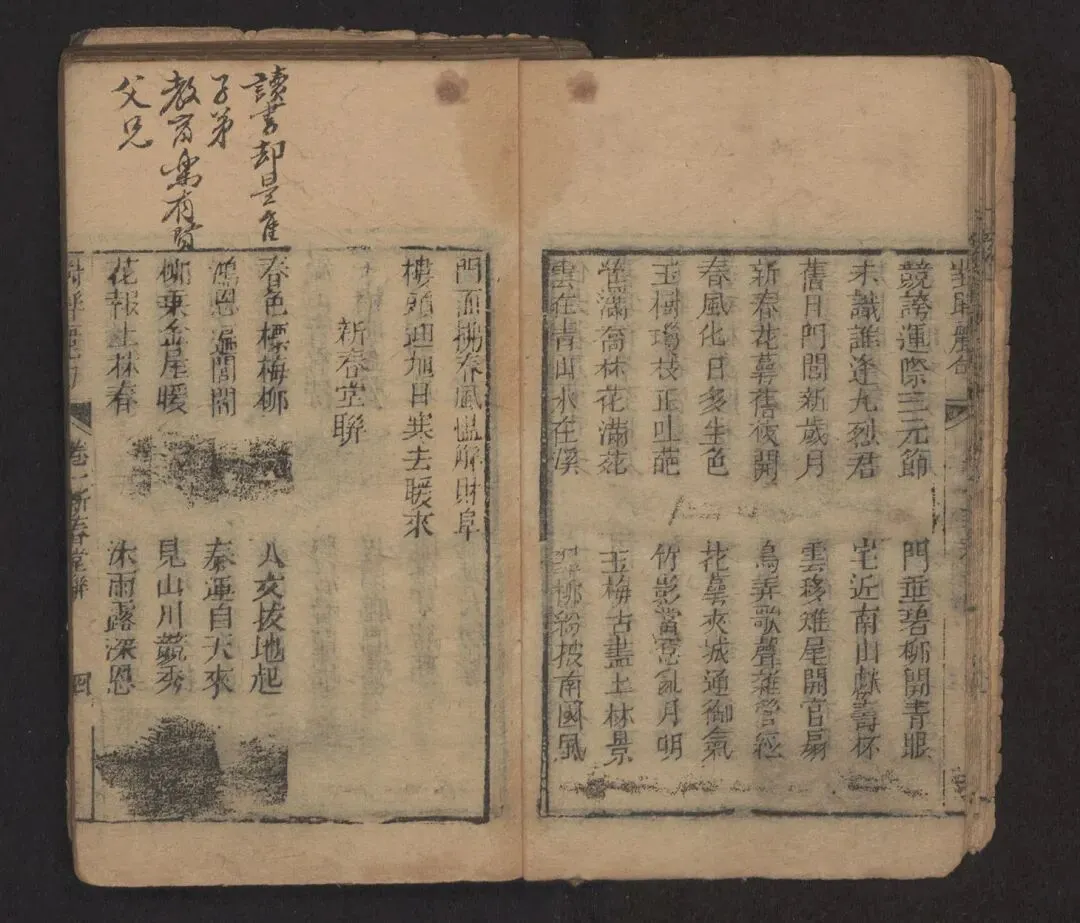 競誇運際三元節 門垂碧柳開青眼
未識誰逢九烈君 宅近南山獻壽杯
舊月門閭新歲月 雲移雉尾開宮扇
新春花萼舊後開 鳥弄歌聲雜管絃
春風化日多生色 花萼夾城通御氣
玉樹瓊枝正吐葩 竹影當窓亂月明
鶯滿喬林花滿苑 玉梅古畫士林景
雲在青山水在溪 柳紛披南國風
門面拂春風慍解財阜
樓頭迎旭日寒去暖來
新春堂聯
讀書却是佳
子弟
教育樂有賢
父兄
春色標梅柳 人文拔地起
鴻恩遍閭閻 泰運自天來
柳乘岳尾暖 見山川競秀
花報上林春 沐雨露深恩
卷一 新春堂聯 四